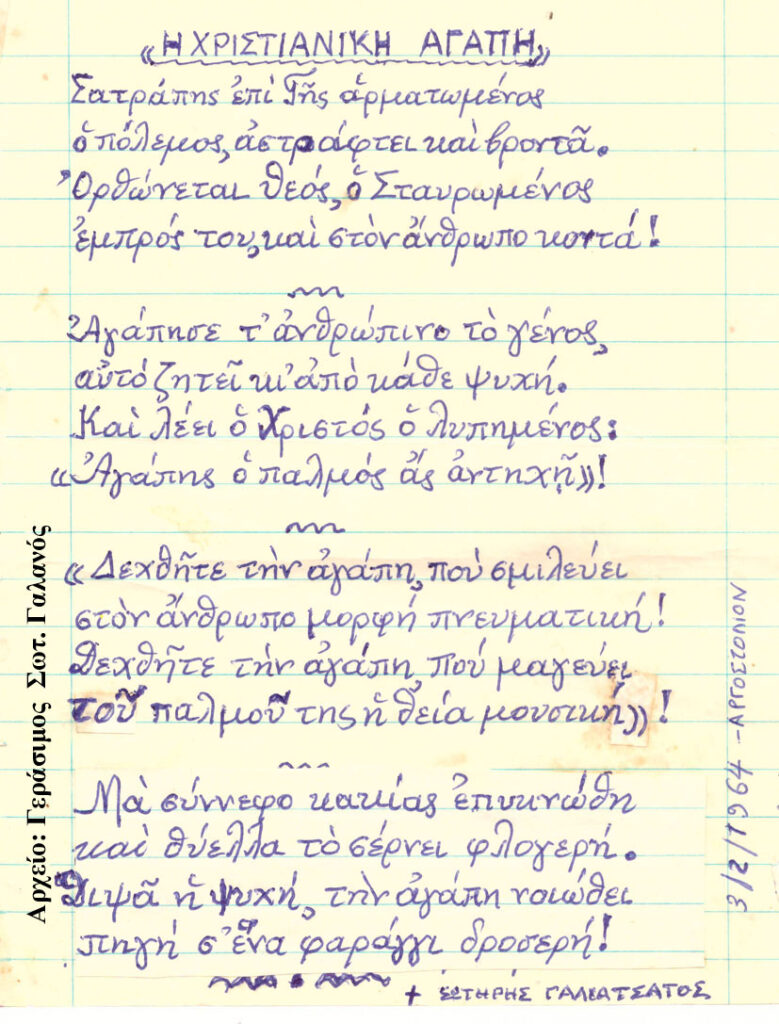 «Η ΧΡΙΣΤΙΑΝΙΚΗ ΑΓΑΠΗ»
Σατράπης ἐπί Γῆς ἁρματωμένος
ὁ πόλεμος, ἀστράφτει καί βροντᾶ.
Ὀρθώνεται Θεός, ὁ Σταυρωμένος
ἐμπρός του, καί στόν ἄνθρωπο κοντά!
Ἀγάπησε τ' ἀνθρώπινο τὸ γένος,
αὐτό ζητεῖ κι' ἀπὸ κάθε ψυχή.
Καὶ λέει ὁ Χριστός ὁ λυπημένος:
«Ἀγάπης ὁ παλμός ἄς ἀντηχῇ»!
«Δεχθῆτε τὴν ἀγάπη, πού σμιλεύει
στὸν ἄνθρωπο μορφή πνευματική!
Δεχθῆτε τήν ἀγάπη, πού μαγεύει
τοῦ παλμοῦ της ἡ θεία μουσική»!
Μὰ σύννεφο κακίας ἐπυκνώθη
καὶ θύελλα τὸ σέρνει φλογερή.
Διψᾶ ἡ ψυχή, τὴν ἀγάπη νοιώθει
πηγή σ' ἕνα φαράγγι δροσερή!
+ ΣΩΤΗΡΗΣ ΓΑΛΙΑΤΣΑΤΟΣ
3/2/1964 - ΑΡΓΟΣΤΟΛΙΟΝ
Αρχείο: Γεράσιμος Σωτ. Γαλανός